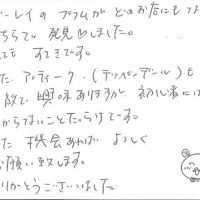 ーレイの プラムが どのお店にもな
ちらで 発見♡しました。
ても すてきです。
た アンティーク.(チッペンデール)も
敵で 興味ありますが、初心者には
からないことだらけです。
た 機会あれば よろしく
お願い致します。
りがとうございました